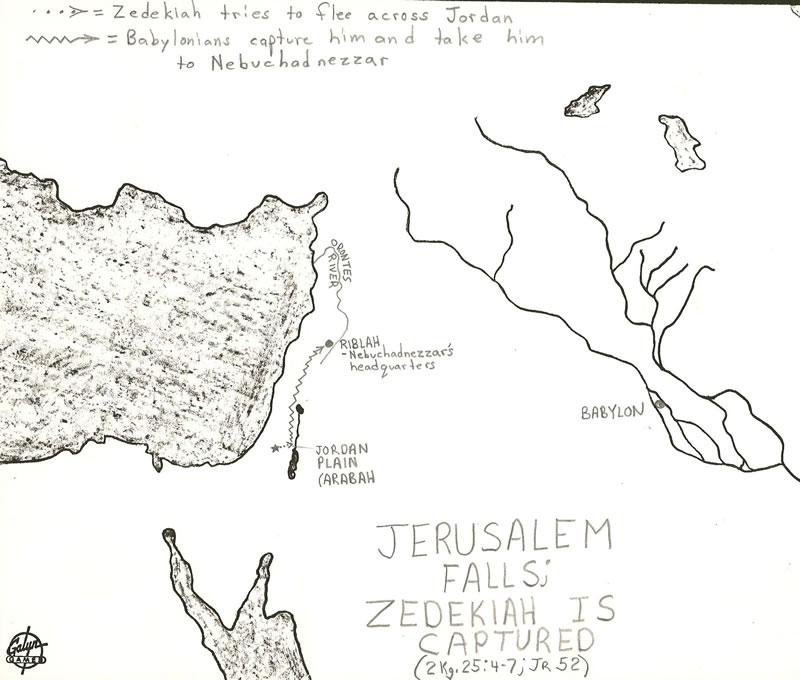 = Zedekiah tries to flee across Jordan
= Babylonians capture him and take him
to Nebuchadnezzar
ORONTES
RIVER
RIBLAH
-Nebuchadnezzar's
headquarters
BABYLON
JORDAN
PLAIN
(ARABAH
JERUSALEM
FALLS;
ZEDEKIAH IS
CAPTURED
(2 Kg. 25:4-7; JR 52)
Galyn
GAMES